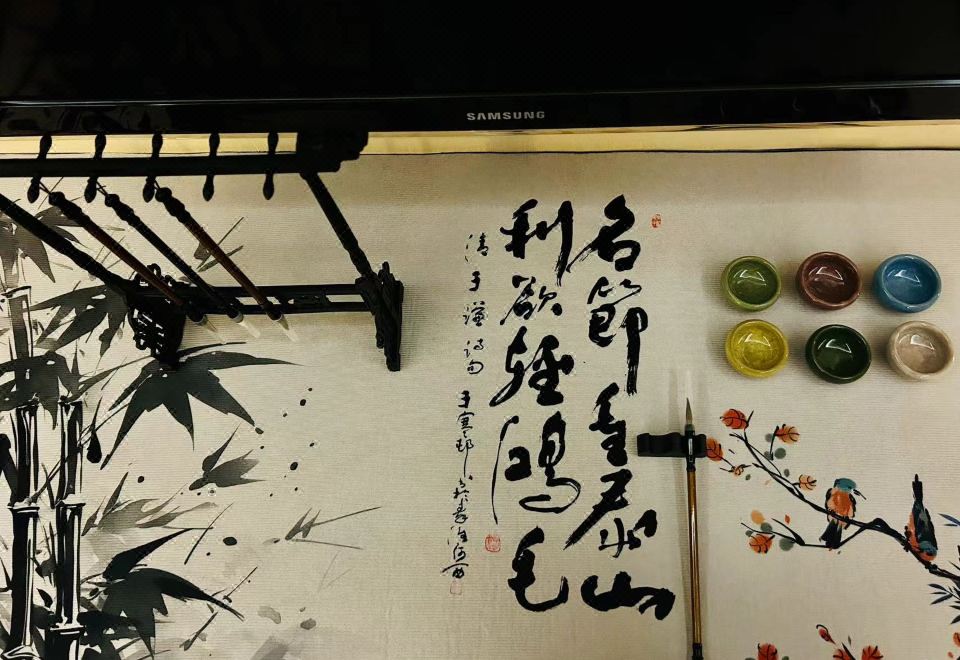 SAMSUNG
名節重泰山
利欲輕鴻毛
清于謙詩句